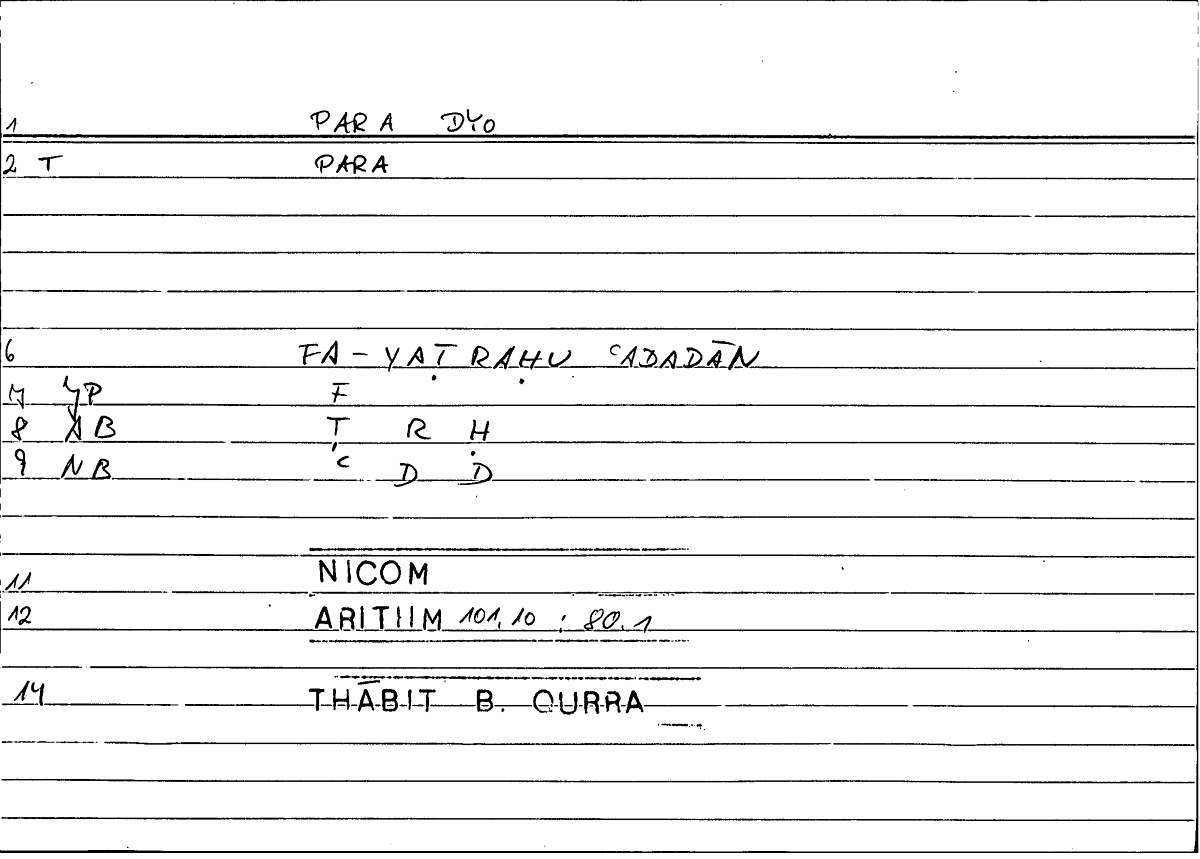 1 PARA DYO
2 T PARA
6 FA-YAṬRAḤU ʿADADĀN
7 YP F
8 AB Ṭ R Ḥ
9 NB ʿ D D
11 NICOM
12 ARITHM 101,10 : 80.1
14 THĀBIT B. QURRA